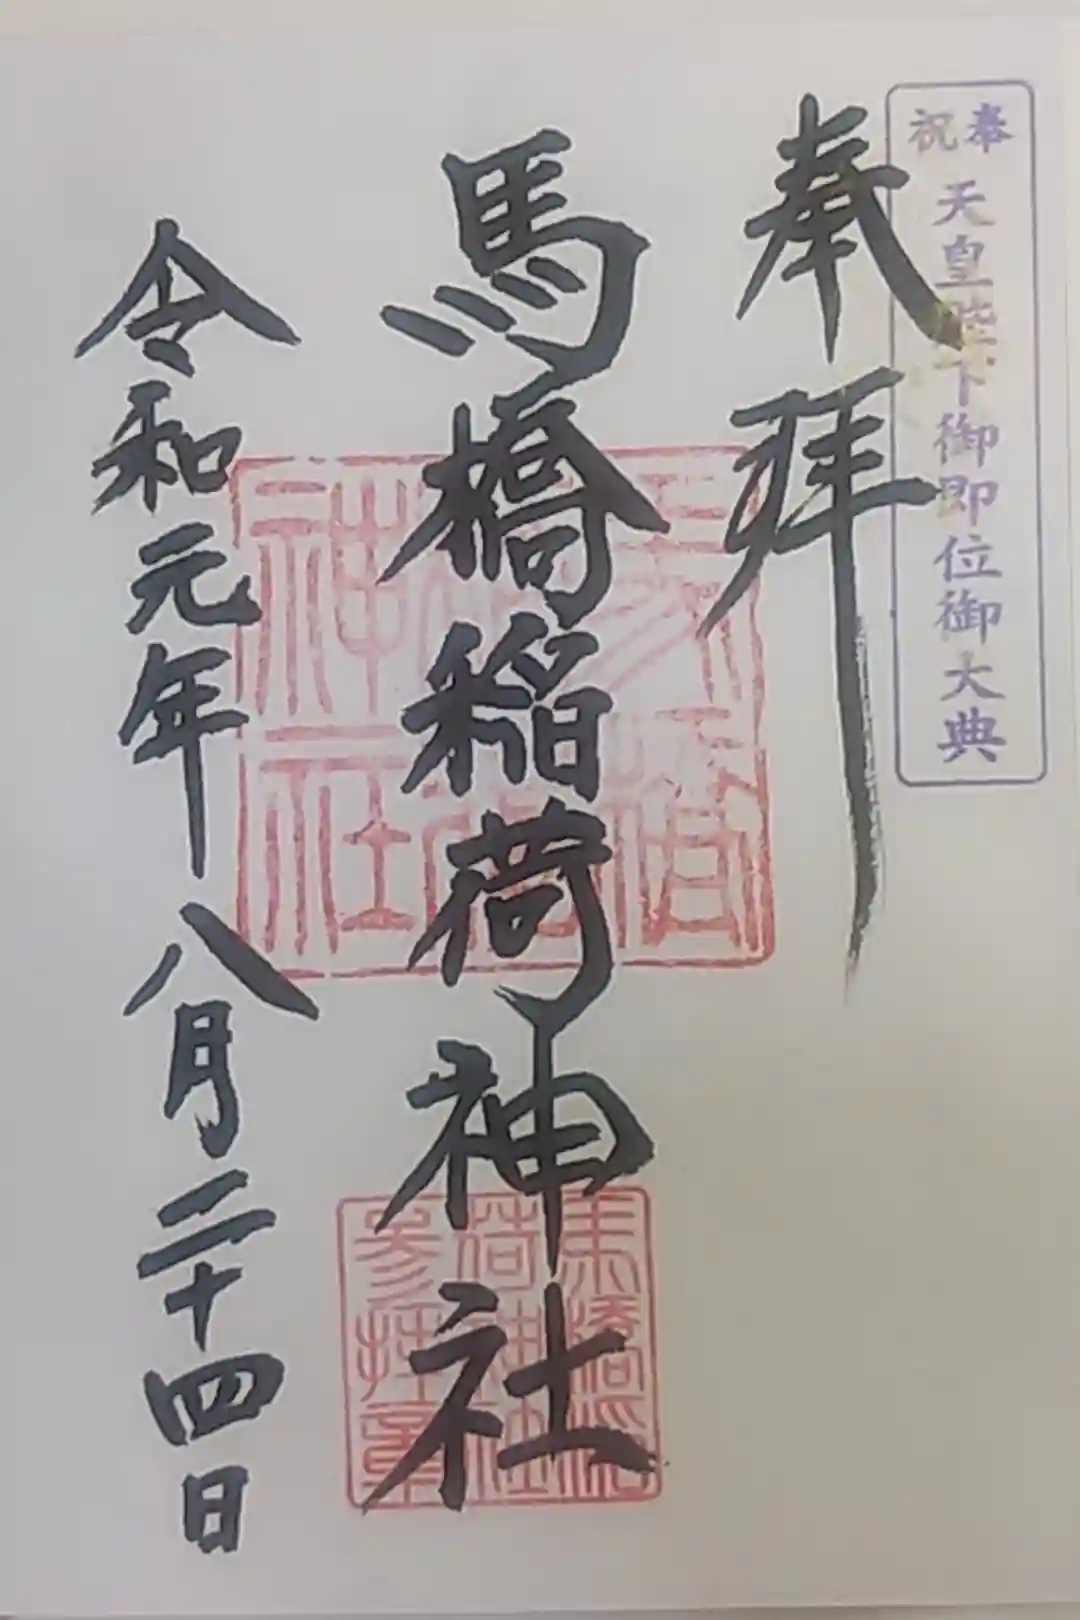 奉祝
天皇陛下御即位御大典
奉拝
馬橋稲荷神社
令和元年八月二十四日
馬橋稲荷神社
馬橋稲荷神社参拝章